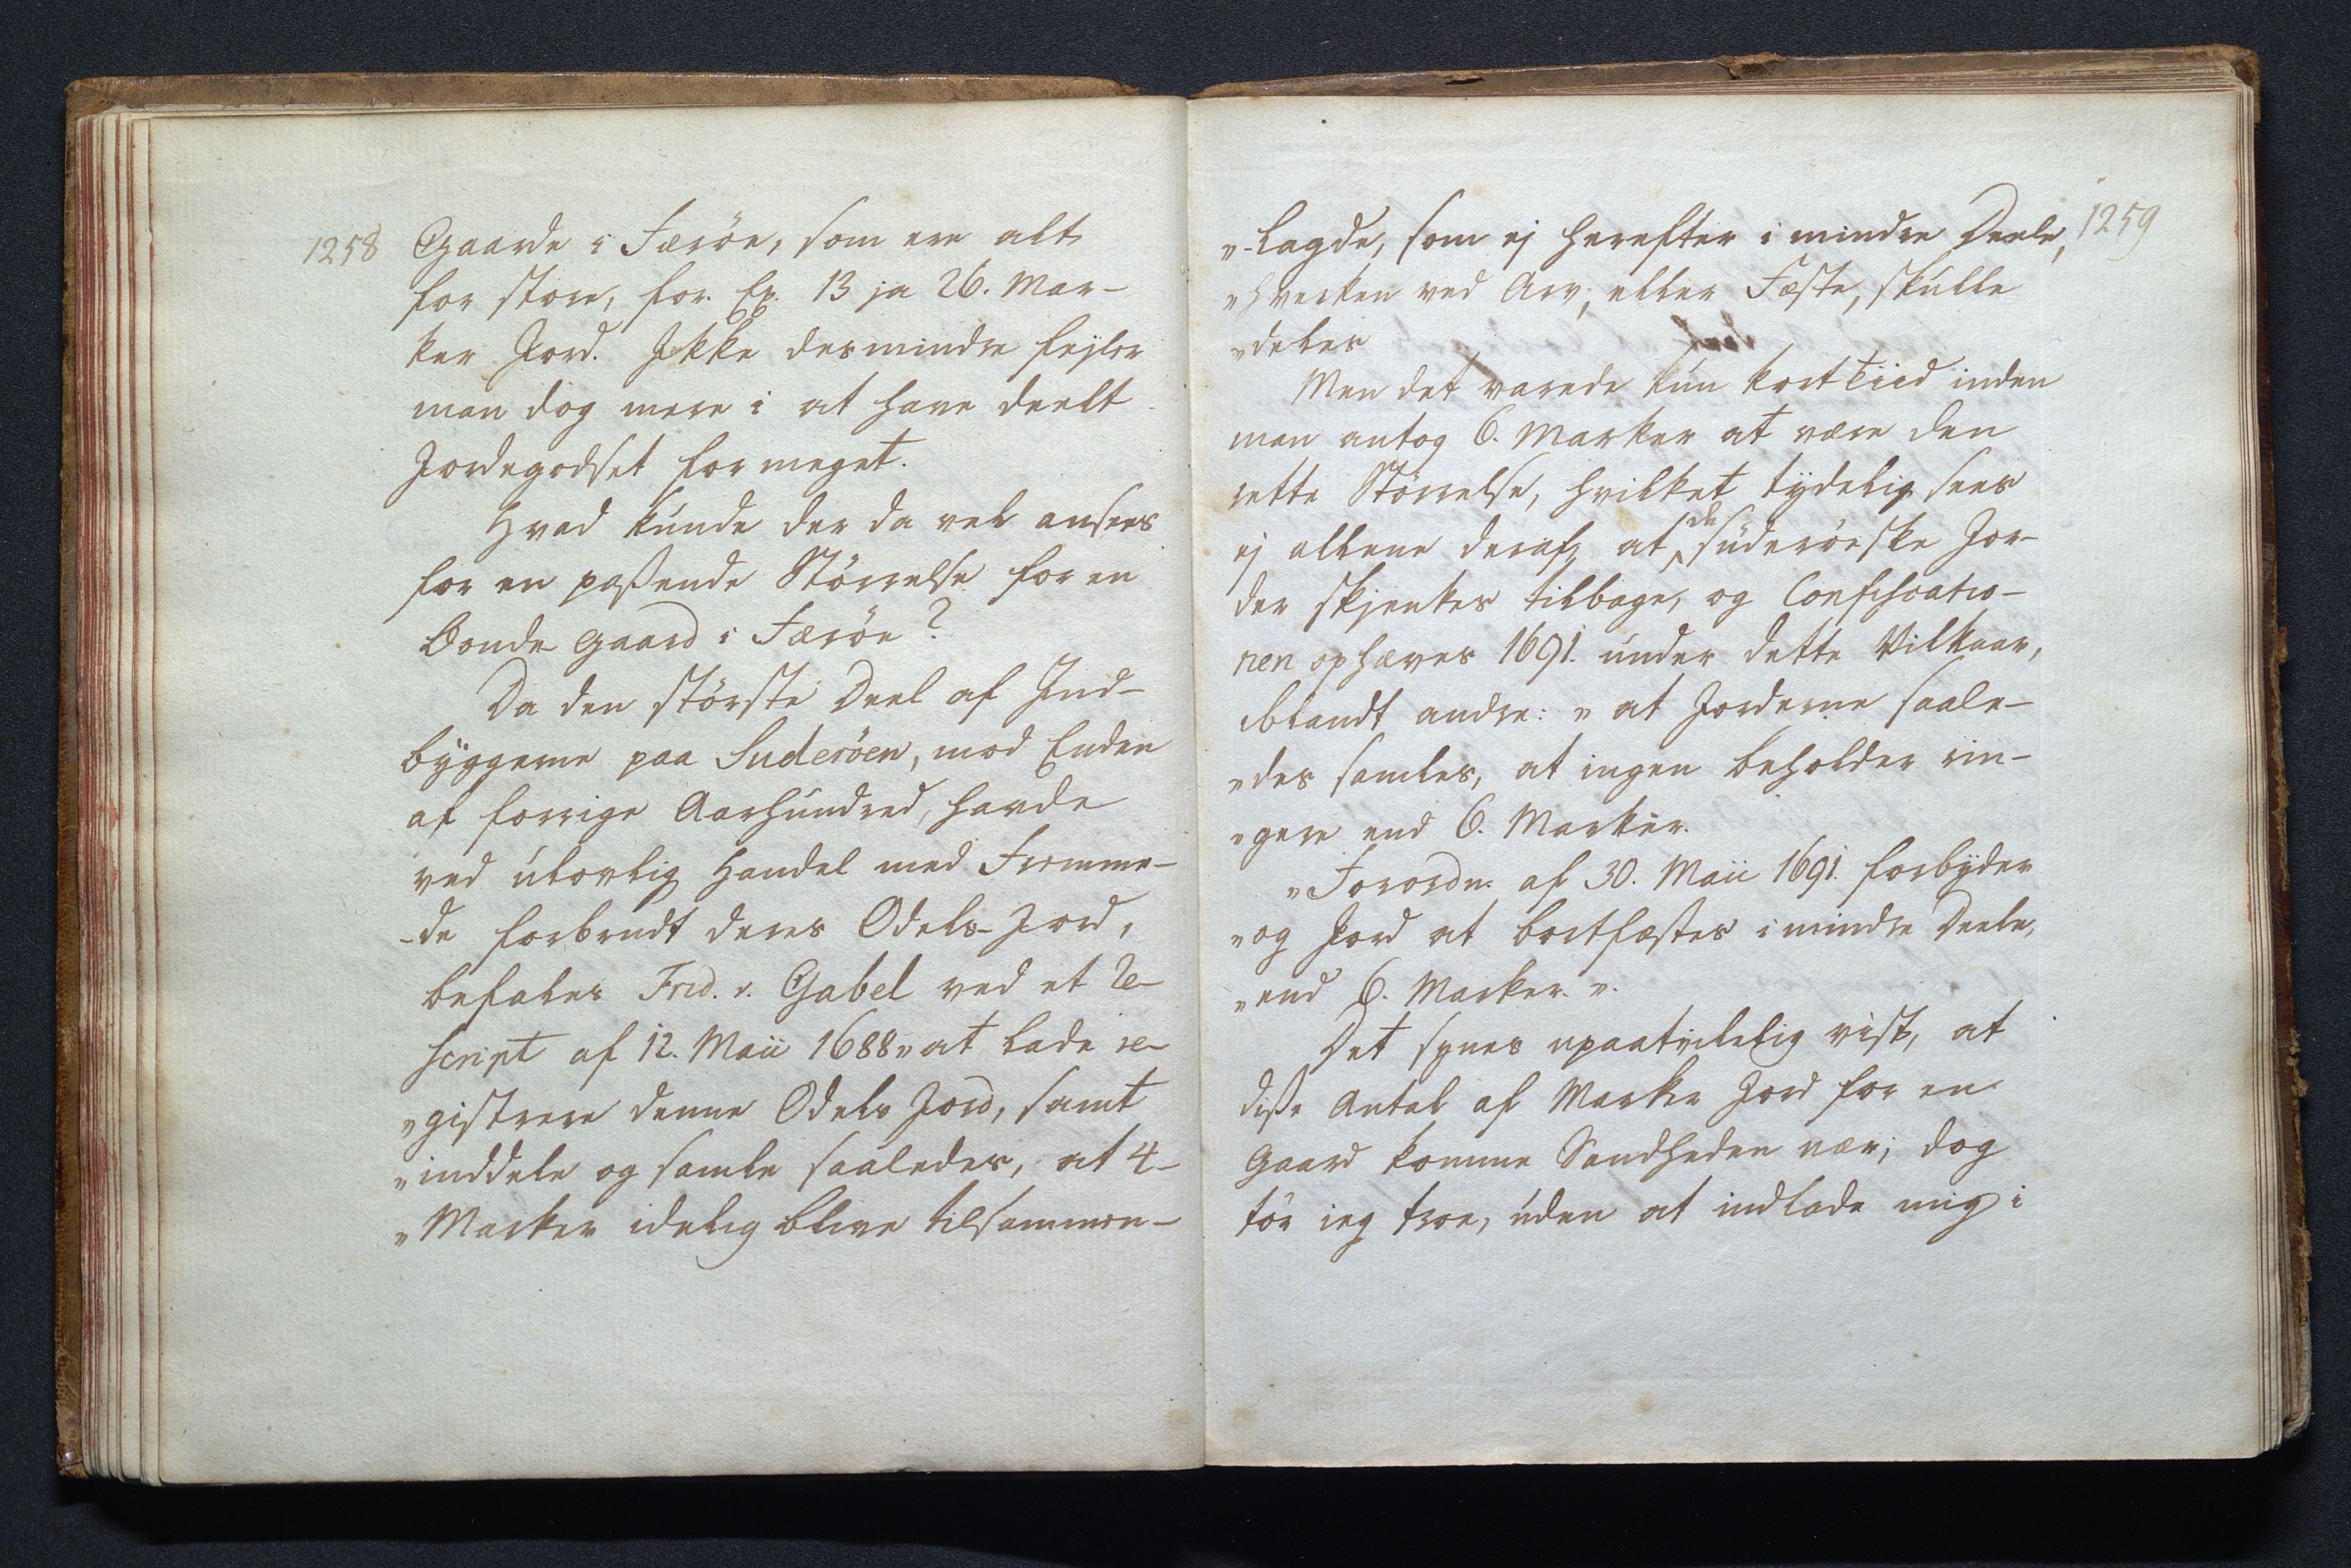 1258
Gaarde i Færöe, som ere alt
for store, for Ex. 13 ja 26. Mar-
ker Jord. Ikke desmindre fejler
man dog mere i at have deelt
Jordegodset for meget.
Hvad kunde der da vel ansees
for en passende Störrelse for en
Bonde Gaard i Færöe?
Da den störste Deel af Ind-
byggerne paa Suderöen, mod Enden
af forrige Aarhundred, havde
ved ulovlig Handel med Fremme-
-de forbrudt deres Odels-Jord,
befales Frid. v. Gabel ved et Re-
script af 12. Maii 1688 „at lade re-
„gistrere denne Odels Jord, samt
„inddele og samle saaledes, at 4-
„Marker idelig blive tilsammen-
1259
„-lagde, som ej herefter i mindre Deele,
„hverken ved Arv, eller Fæste, skulle
„deles
Men det varede kun kort Tiid inden
man antog 6. Marker at være den
rette Störrelse, hvilket tydelig sees
ej allene deraf, at de süderöeske Jor-
der skjenkes tilbage, og Confiscatio-
nen ophæves 1691. under dette Vilkaar,
iblandt andre: „at Jorderne saale-
„des samles, at ingen beholder rin-
„gere end 6. Marker.
„Forordn. af 30. Maii 1691. forbyder
„og Jord at bortfæstes i mindre Deele,
„end 6. Marker.„.
Det synes upaatvilelig vist, at
disse Antal af Marker Jord for en
Gaard komme Sandheden nær; dog
tör ieg troe, uden at indlade mig i